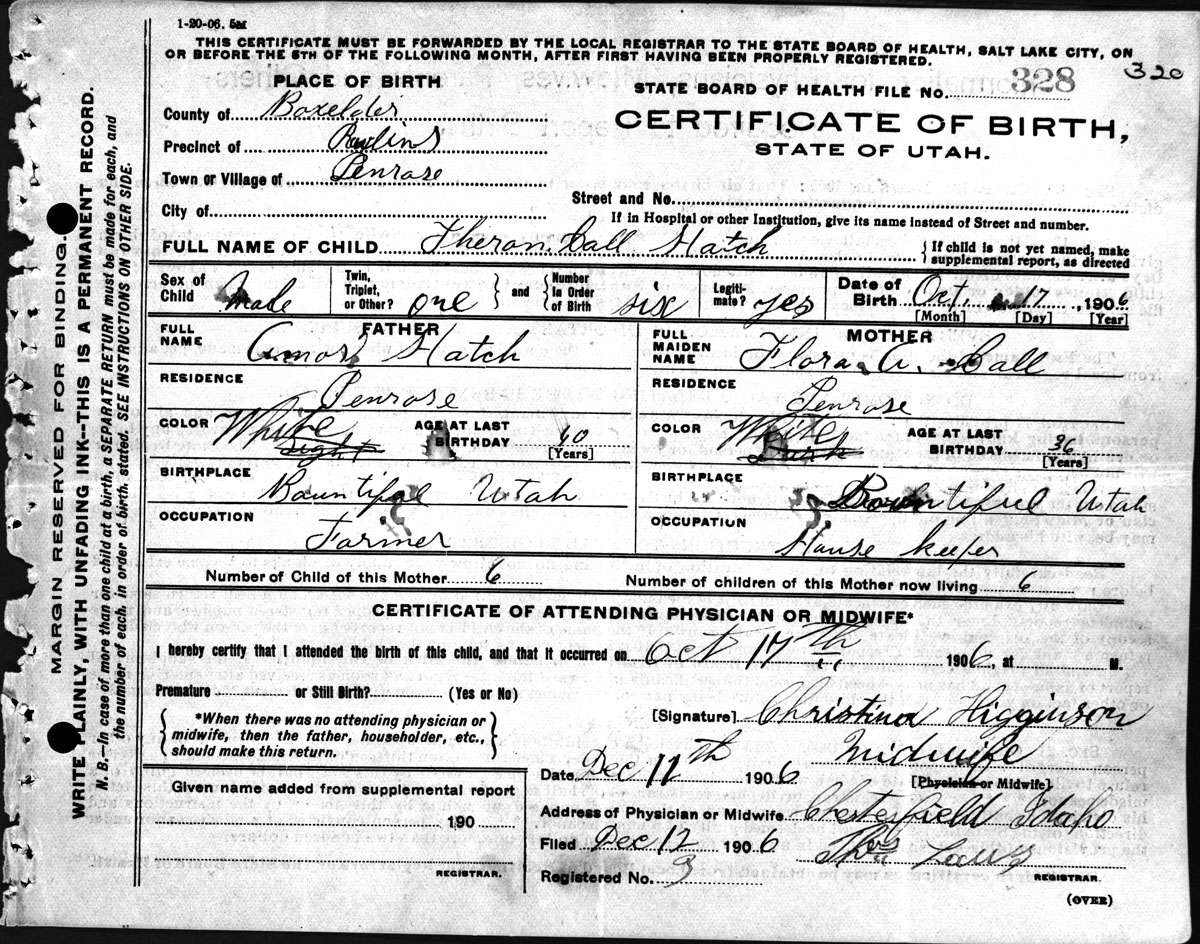 1-20-06. 5M
THIS CERTIFICATE MUST BE FORWARDED BY THE LOCAL REGISTRAR TO THE STATE BOARD OF HEALTH, SALT LAKE CITY, ON
OR BEFORE THE 5TH OF THE FOLLOWING MONTH, AFTER FIRST HAVING BEEN PROPERLY REGISTERED.
320
PLACE OF BIRTH
STATE BOARD OF HEALTH FILE NO. 328
County of Boxelder
CERTIFICATE OF BIRTH,
STATE OF UTAH.
Precinct of Rawlins
Town or Village of Penrose
Street and No.
City of
If in Hospital or other Institution, give its name instead of Street and number.
FULL NAME OF CHILD Theron Call Hatch { If child is not yet named, make supplemental report, as directed
Sex of Child Male Twin, Triplet, or Other? one } and { Number in Order of Birth six Legiti-mate? yes Date of Birth Oct. 17, 1906
[Month] [Day] [Year]
FATHER
FULL NAME Amos Hatch
RESIDENCE Penrose
COLOR White Light AGE AT LAST BIRTHDAY 40 [Years]
BIRTHPLACE Bountiful Utah
OCCUPATION Farmer
MOTHER
FULL MAIDEN NAME Flora A. Call
RESIDENCE Penrose
COLOR White Dark AGE AT LAST BIRTHDAY 36 [Years]
BIRTHPLACE Bountiful Utah
OCCUPATION House keeper
Number of Child of this Mother 6 Number of children of this Mother now living 6
CERTIFICATE OF ATTENDING PHYSICIAN OR MIDWIFE*
I hereby certify that I attended the birth of this child, and that it occurred on Oct 17th 1906, at M.
Premature or Still Birth? (Yes or No)
{ *When there was no attending physician or midwife, then the father, householder, etc., should make this return. }
[Signature] Christina Higginson
Midwife
Date Dec 11th 1906 [Physician or Midwife]
Given name added from supplemental report
190
REGISTRAR.
Address of Physician or Midwife Chesterfield Idaho
Filed Dec 12 1906 Thos Laws
Registered No. 3 REGISTRAR.
(OVER)
MARGIN RESERVED FOR BINDING.
WRITE PLAINLY, WITH UNFADING INK--THIS IS A PERMANENT RECORD.
N. B.--In case of more than one child at a birth, a SEPARATE RETURN must be made for each, and
the number of each, in order of birth, stated. SEE INSTRUCTIONS ON OTHER SIDE.